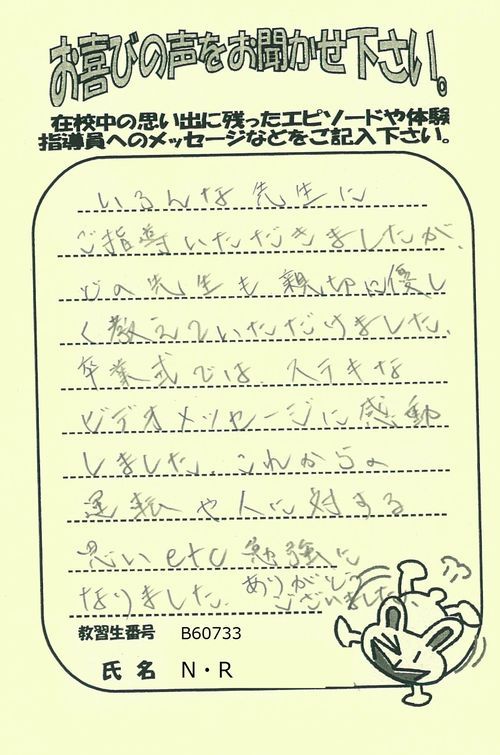 お喜びの声をお聞かせ下さい。
在校中の思い出に残ったエピソードや体験
指導員へのメッセージなどをご記入下さい。
いろんな先生に
ご指導いただきましたが、
どの先生も親切に優し
く教えていただけました。
卒業式では、ステキな
ビデオメッセージに感動
しました。これからの
運転や人に対する
思いetc勉強に
なりました。ありがとう
ございました。
教習生番号 B60733
氏名 N・R